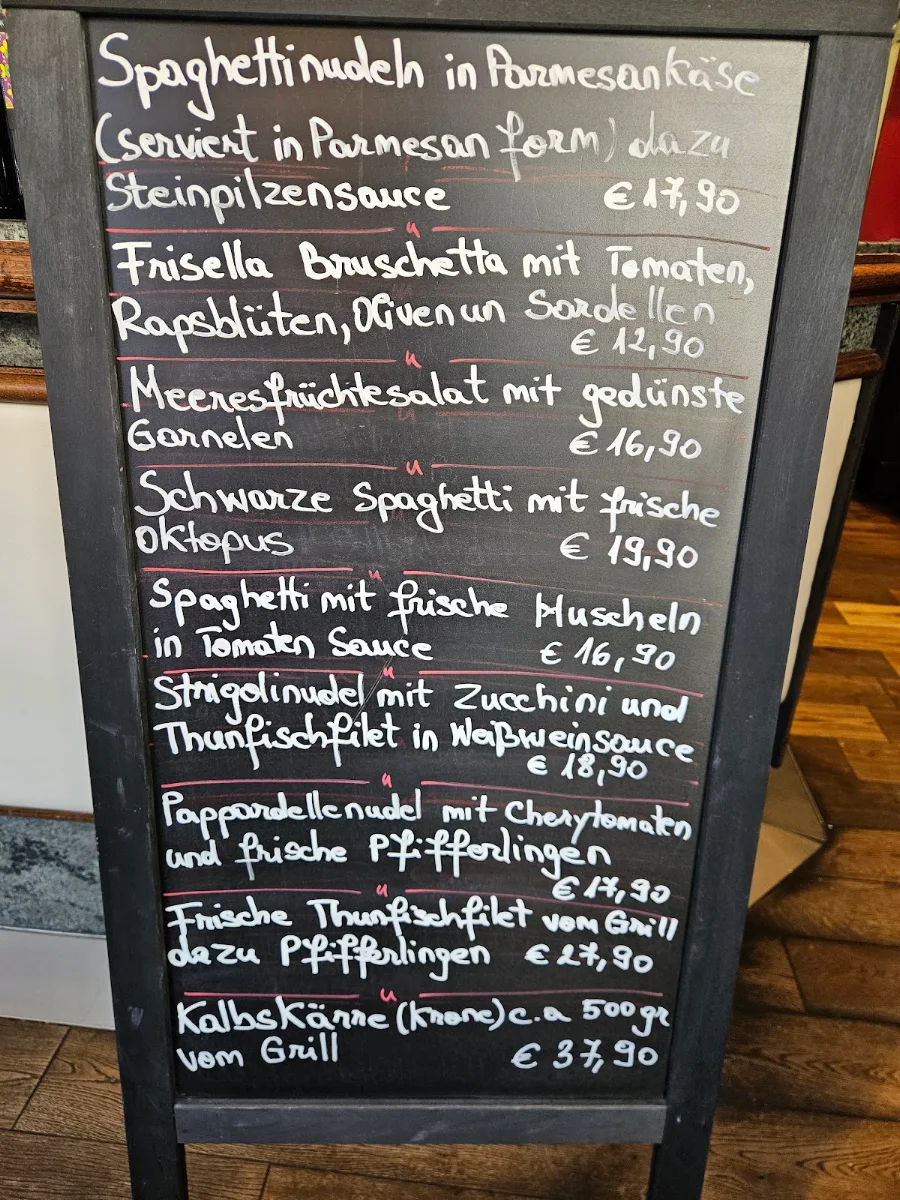 Spaghettinudeln in Parmesankäse
(serviert in Parmesan form) dazu
Steinpilzensauce € 17,90
Frisella Bruschetta mit Tomaten,
Rapsblüten, Oliven un Sardellen
€ 12,90
Meeresfrüchtesalat mit gedünste
Garnelen € 16,90
Schwarze Spaghetti mit frische
Oktopus € 19,90
Spaghetti mit frische Muscheln
in Tomaten Sauce € 16,90
Strigolinudel mit Zucchini und
Thunfischfilet in Weißweinsauce
€ 18,90
Pappardellenudel mit Cherytomaten
und frische Pfifferlingen
€ 17,90
Frische Thunfischfilet vom Grill
dazu Pfifferlingen € 27,90
Kalbskärre (Krone) c.a 500 gr
vom Grill € 37,90